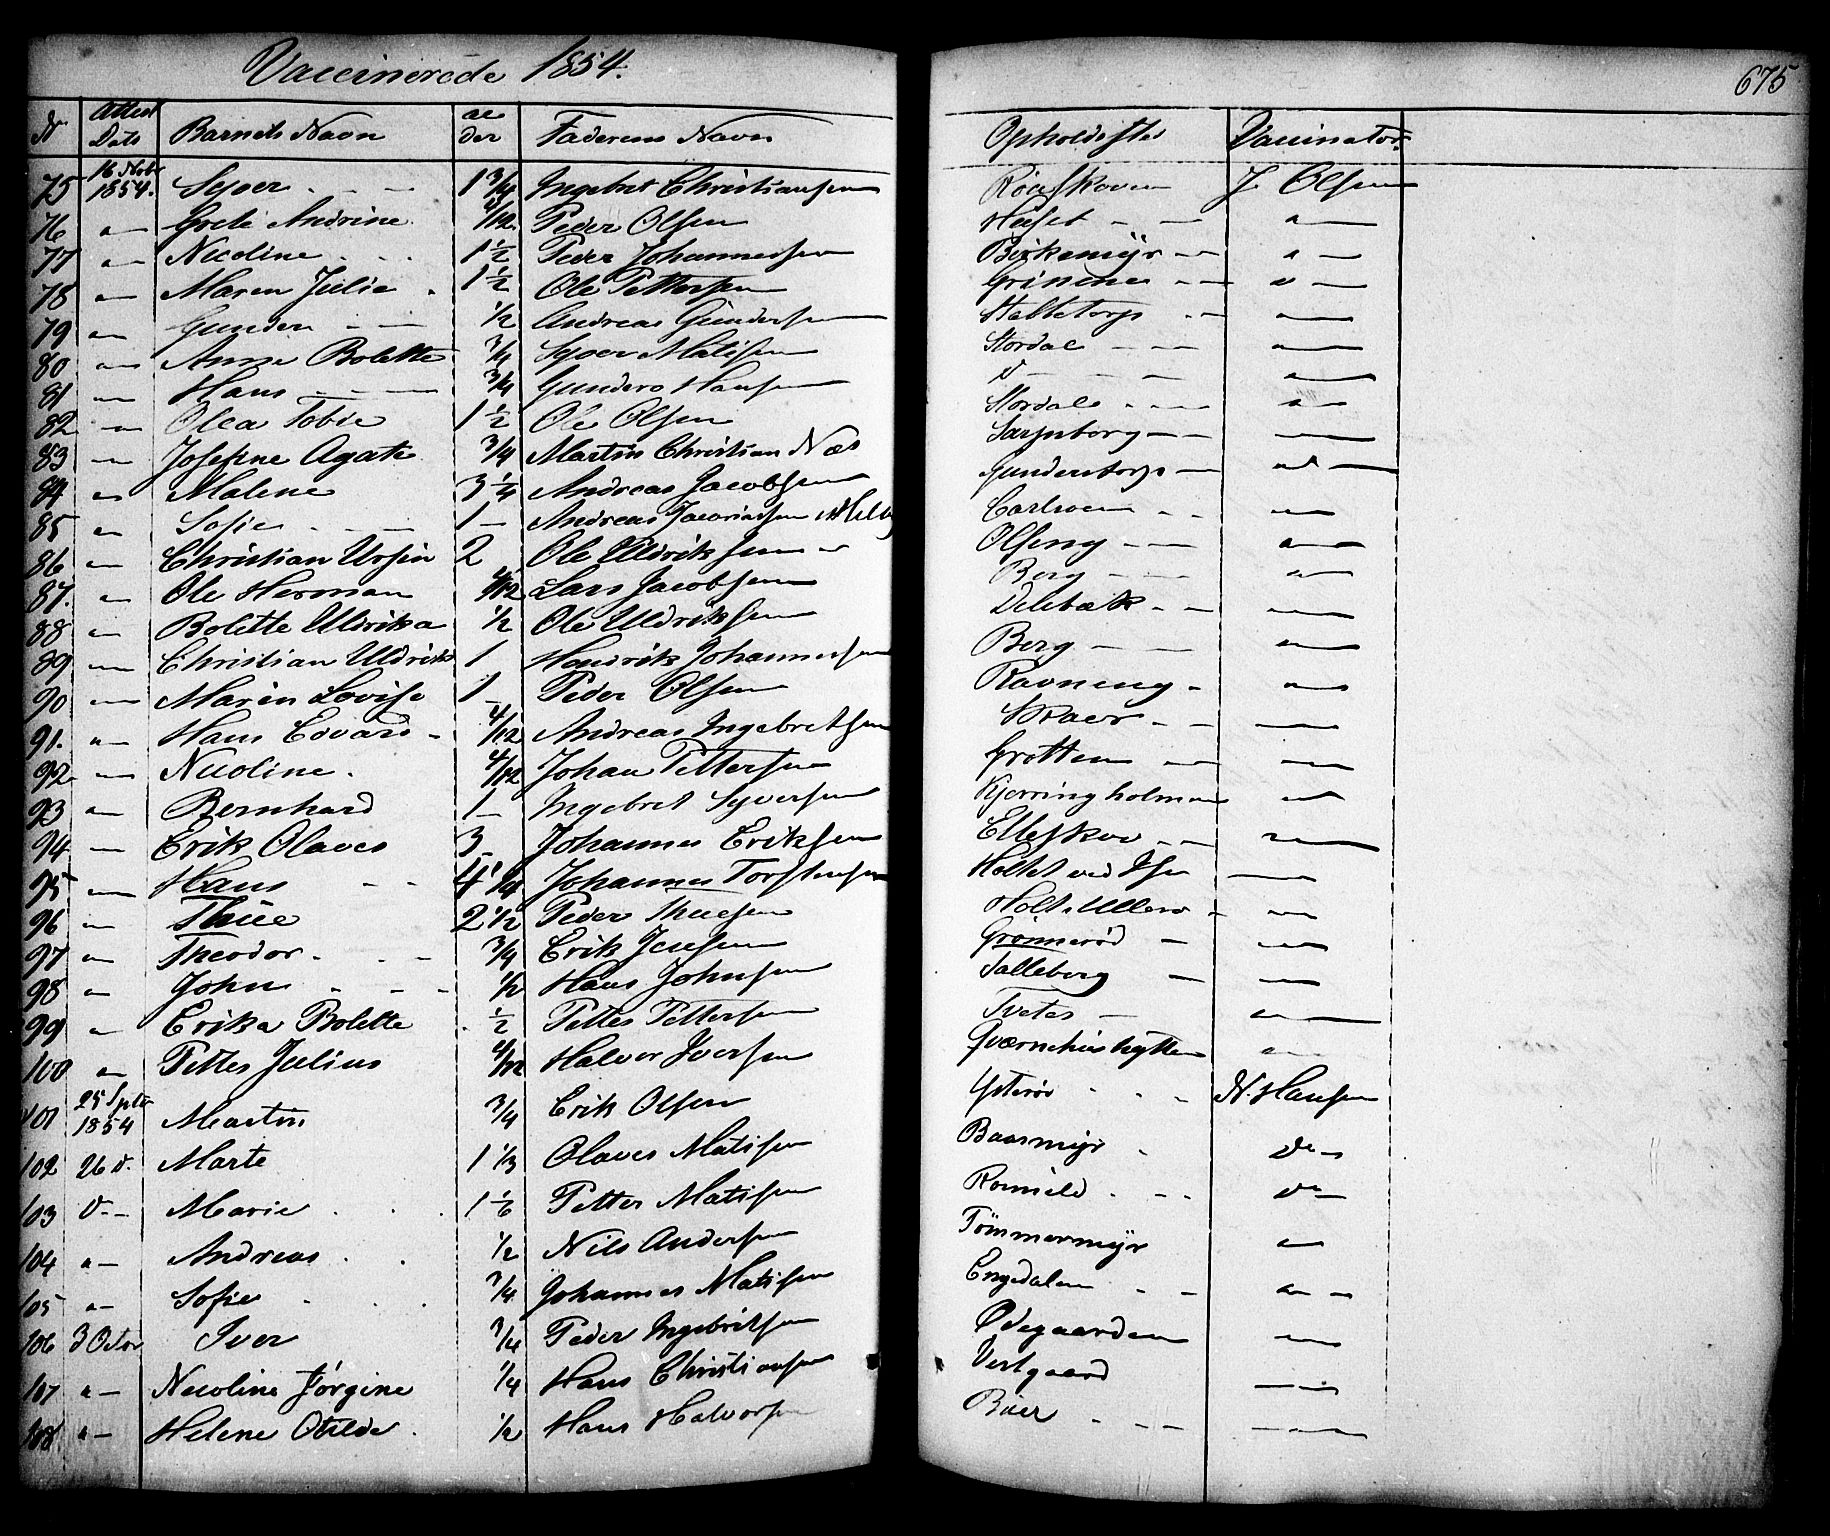 Vaccinerede 1854.
675
N Attest Dato Barnets Navn al der Faderens Navn Opholdssted Vaccinator
75 16 Novbr 1854. Syver - - 1 3/4 Ingebret Christiansen Röeskoven J Olsen
76 " — Grete Andrine 4/12 Peder Olsen Huset - — " —
77 " — Nicoline 1 1/2 Peder Johannessen Birkemÿr - — " —
78 " — Maren Julie 1 1/2 Ole Pettersen Grinene - — " —
79 " — Gunder - — 1/2 Andreas Gundersen Stabetorp - — " —
80 " — Anne Bolette 3/4 Syver Matisen Stordal - — " —
81 " — Hans - — 3/4 Gunder Hansen d - - - " —
82 " — Olea Tobie 1 1/2 Ole Olsen Stordal - — " —
83 " — Josefine Agate 3/4 Martin Christian Næs Sarpsborg - — " —
84 " — Malene 3 1/4 Andreas Jacobsen Gunderstorp — " —
85 " — Sofie - — 1 — Andreas Zacariassen Carlsven - - " —
86 " — Christian Ursin 2 Ole Uldriksen Olseng - — " —
87. " — Ole Herman 4/12 Lars Jacobsen Berg - — " —
88 " — Bolette Uldrika 1/2 Ole Uldriksen Delebæk - - " —
89 " — Christian Uldrik 1 Hendrik Johannessen Berg - — " —
90 " — Maren Lovise 1 — Peder Olsen Ravneng - " —
91. " — Hans Edvard - 4/12 Andreas Ingebretsen Skaar - - " —
92 " — Nicoline. 4/12 Johan Pettersen Grotten — " —
93 " — Bernhard 1 — Ingebret Syversen Kjerringholmen " —
94 " — Erik Olaves 3 Johannes Eriksen Elleskov - — " —
95 " — Hans - - 4 1/4 Johannes Torstensen Holtet ved Ise " —
96 " — Thue 2 1/2 Peder Thuesen Holt i Ullerö - " —
97 " — Theodor - - — 3/4 Erik Jensen Grönnerød — " —
98 " — John - - - 1/2 Hans Johnsen Talleborg — " —
99 " — Erika Bolette 1/2 Petter Pettersen Tveter — " —
100 " — Petter Julius 4/12 Halvor Iversen Qværnehushytten " —
101 25 Sptbr 1854 Martin 3/4 Erik Olsen Ysterød - - N. Hansen
102 26 d. Marte 1 1/3 Olaves Matisen Baasmÿr - do —
103 d. — Marie 1 1/6 Petter Matisen - - do —
104 " — Andreas 1/2 Nils Andersen Tömmermÿr " —
105 " — Sofie 3/4 Johannes Matisen Engedalen - - " —
106 3 Octbr Iver 3/4 Peder Ingebritsen Ödegaarden " —
107 " — Nicoline Jörgine 1/4 Hans Christiansen Vestgaard " —
108 " — Helene Otilde 1/2 Hans Halvorsen Böer - - - " —